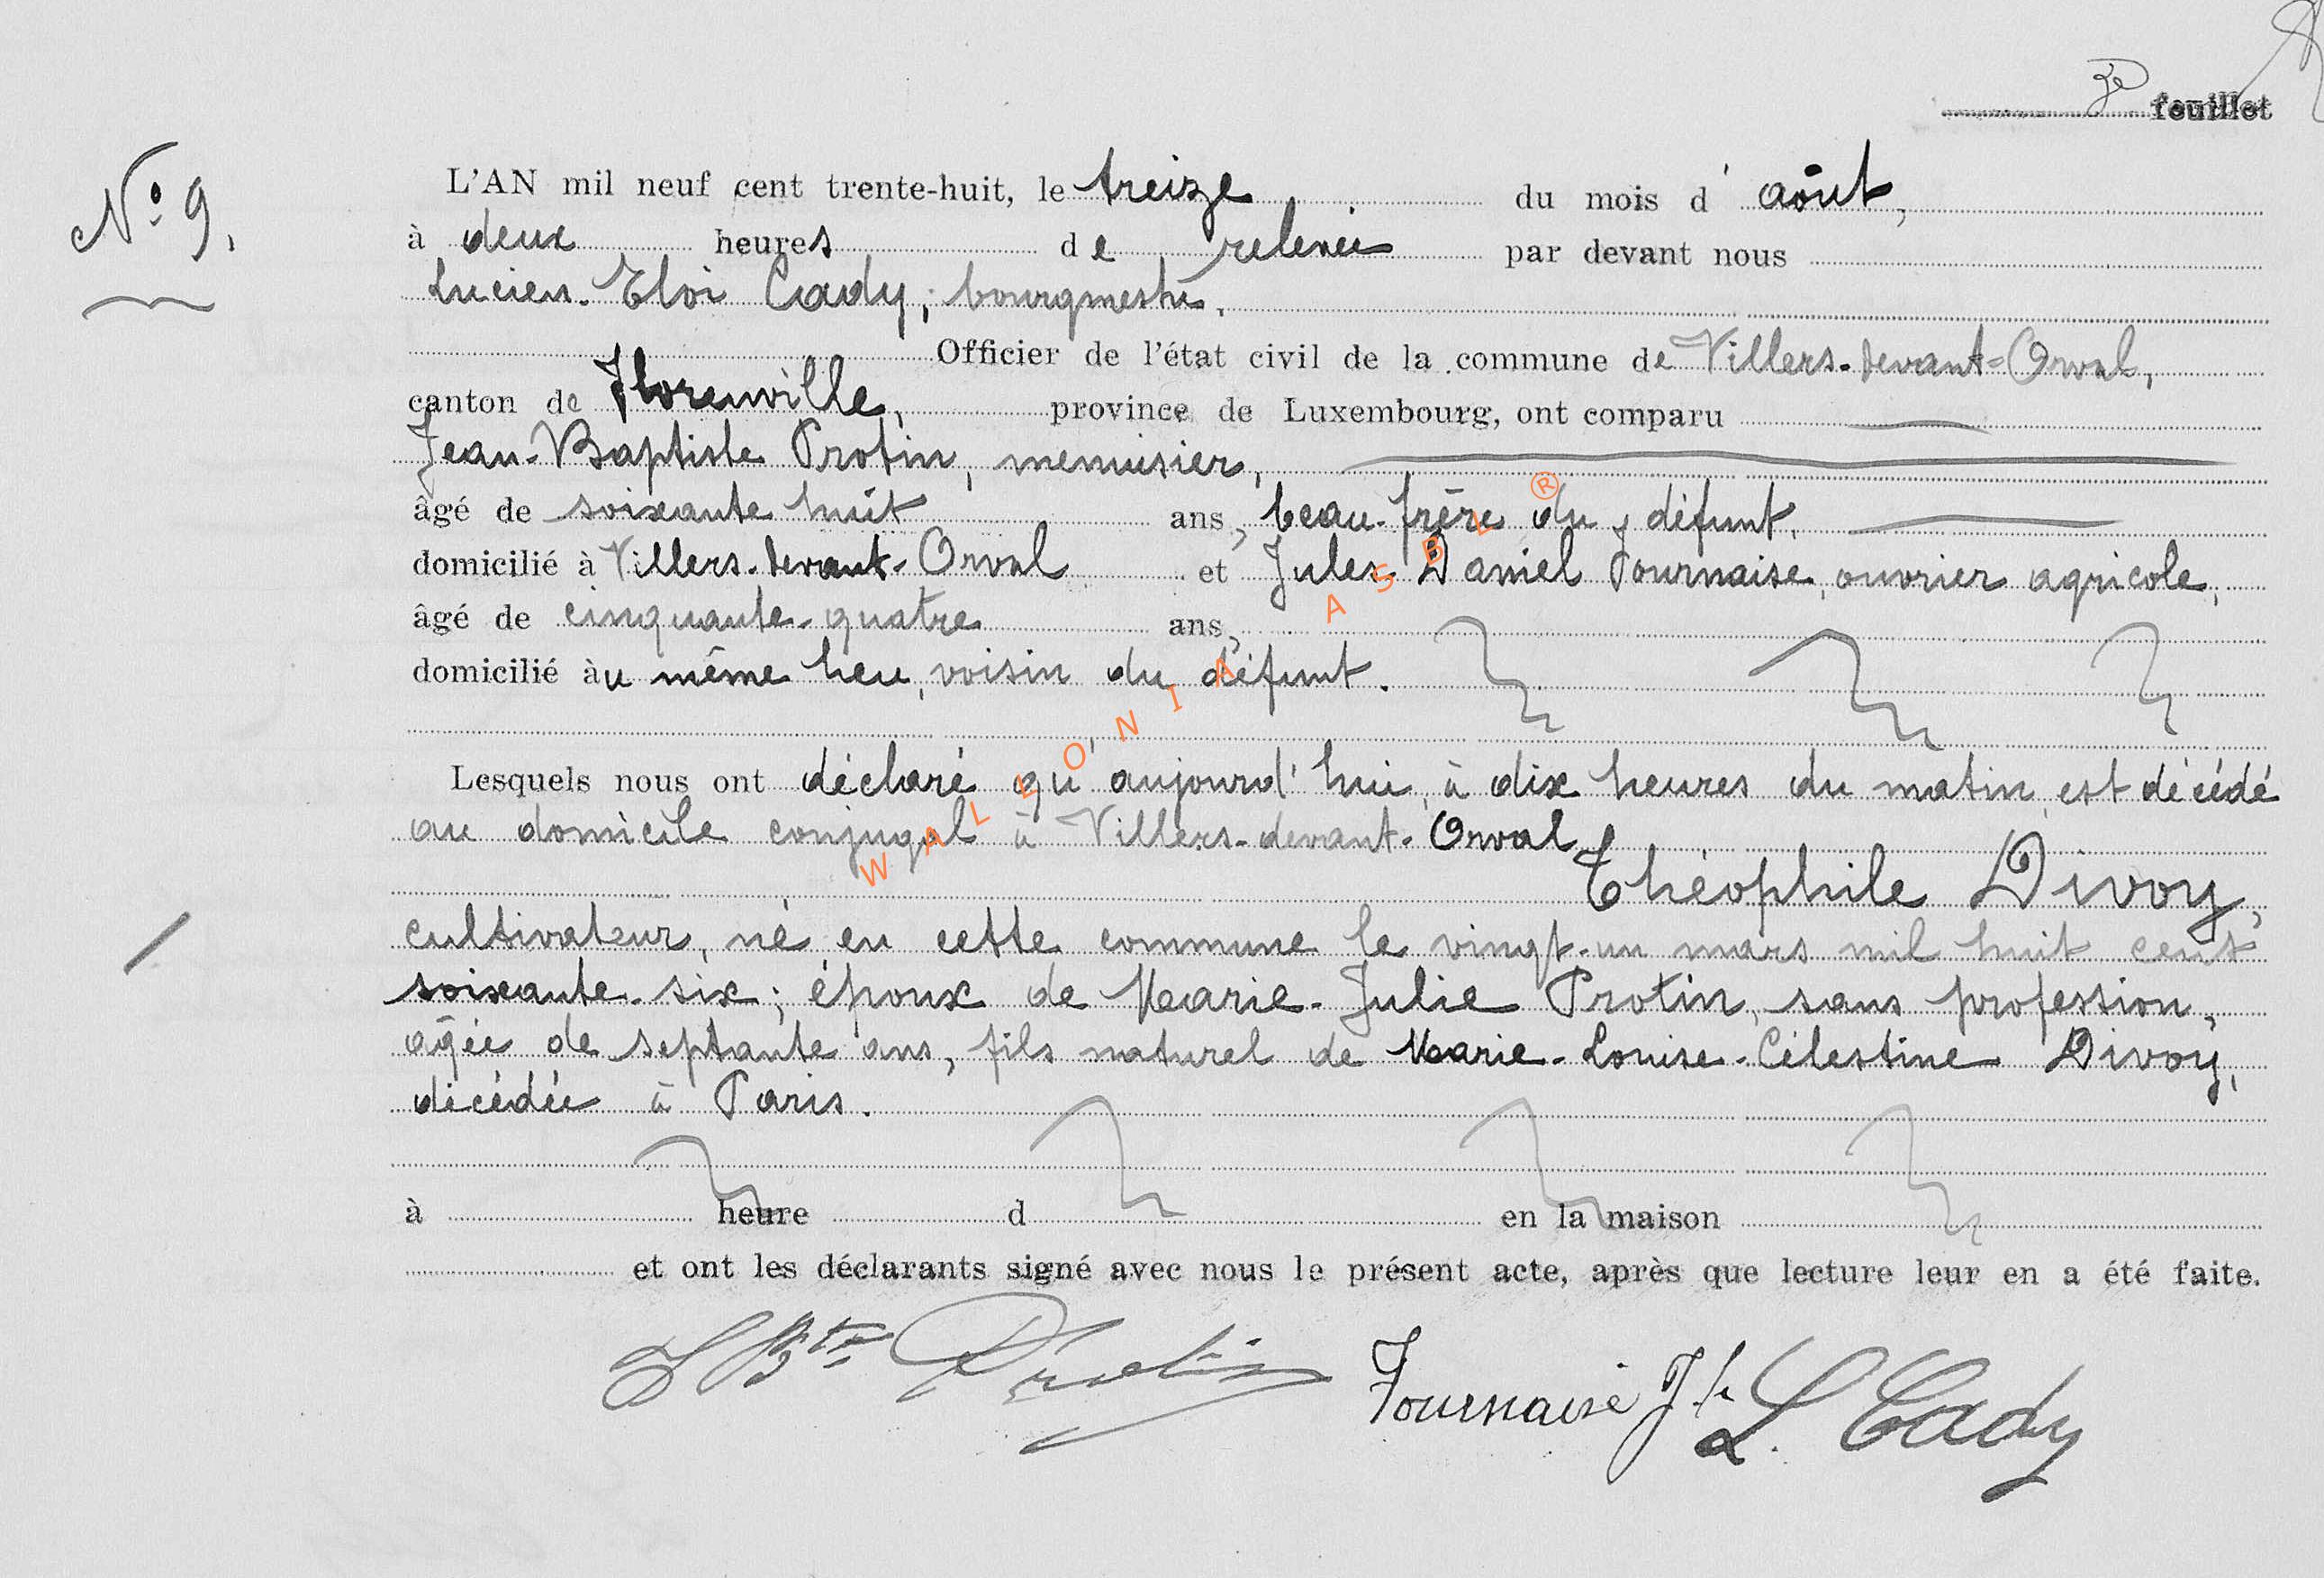 3e feuillet
N° 9.
L'AN mil neuf cent trente-huit, le treize du mois d'août,
à deux heures de relevée par devant nous
Lucien-Eloi Cady, bourgmestre,
Officier de l'état civil de la commune de Villers-devant-Orval,
canton de Florenville, province de Luxembourg, ont comparu
Jean-Baptiste Protin, menuisier,
âgé de soixante huit ans, beau-frère du défunt,
domicilié à Villers-devant-Orval et Jules-Daniel Fournaise, ouvrier agricole,
âgé de cinquante-quatre ans,
domicilié àu même lieu, voisin du défunt.
Lesquels nous ont déclaré qu'aujourd'hui, à dix heures du matin, est décédé
au domicile conjugal à Villers-devant-Orval
Théophile Divoy,
cultivateur, né en cette commune le vingt-un mars mil huit cent
soixante-six; époux de Marie-Julie Protin, sans profession,
agée de septante ans, fils naturel de Marie-Louise-Célestine Divoy,
décédée à Paris.
à heure d en la maison
et ont les déclarants signé avec nous le présent acte, après que lecture leur en a été faite.
J Bte Protin Fournaise Jls L. Cady
WALLONIA ASBL ®